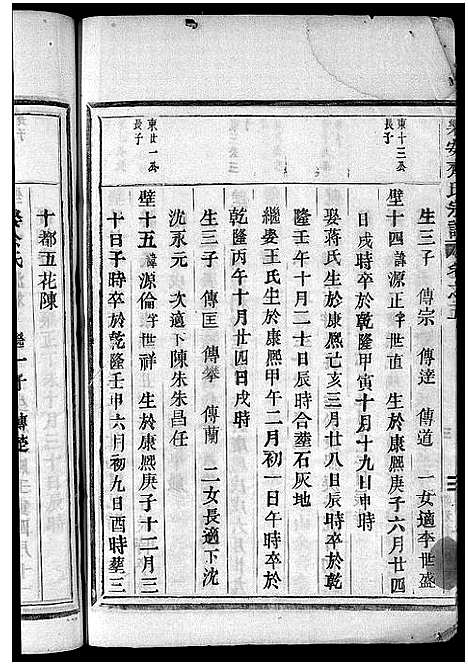 生三子 傳宗 傳達 傳道 一女適李世盛
東十三公長子
璧十四諱源正字世值 生於康熙庚子六月廿四
日戌時卒於乾隆甲寅十月十九日申時
娶蔣氏生於康熙己亥三月廿八日辰時卒於乾
隆壬午十月二十日辰時合塟石灰地
繼娶王氏生於康熙甲午二月初一日午時卒於
乾隆丙午十月廿四日戌時
生三子 傳匡 傳攀 傳蘭 二女長適下沈
沈永元 次適下陳朱朱昌任
東廿一公長子
璧十五諱源倫字世祥 生於康熙庚子十二月三
十日子時卒於乾隆壬申六月初九日酉時塟三
十都五花陳